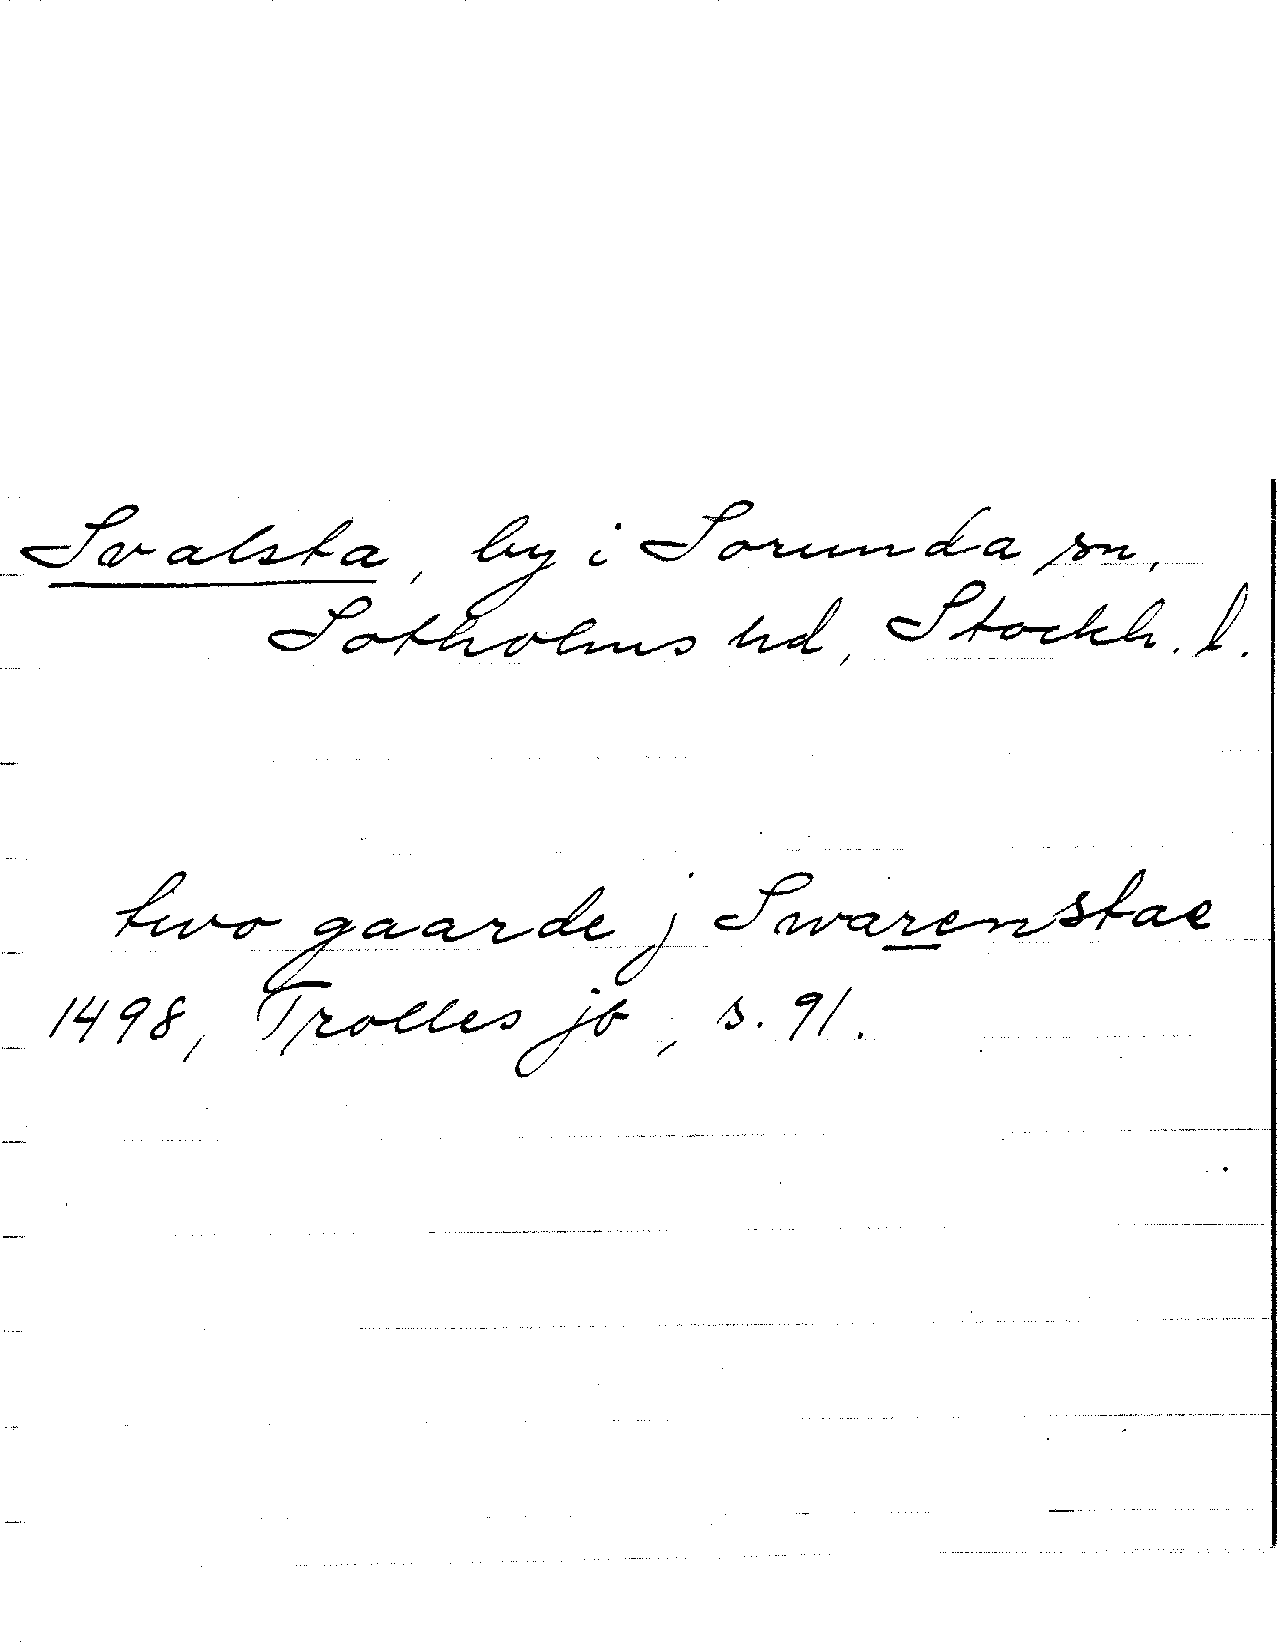 Svalsta, by i Sorunda sn,
Sotholms hd, Stockh. l.
two gaarde j Swarenstae
1498, Trolles jb, s. 91.